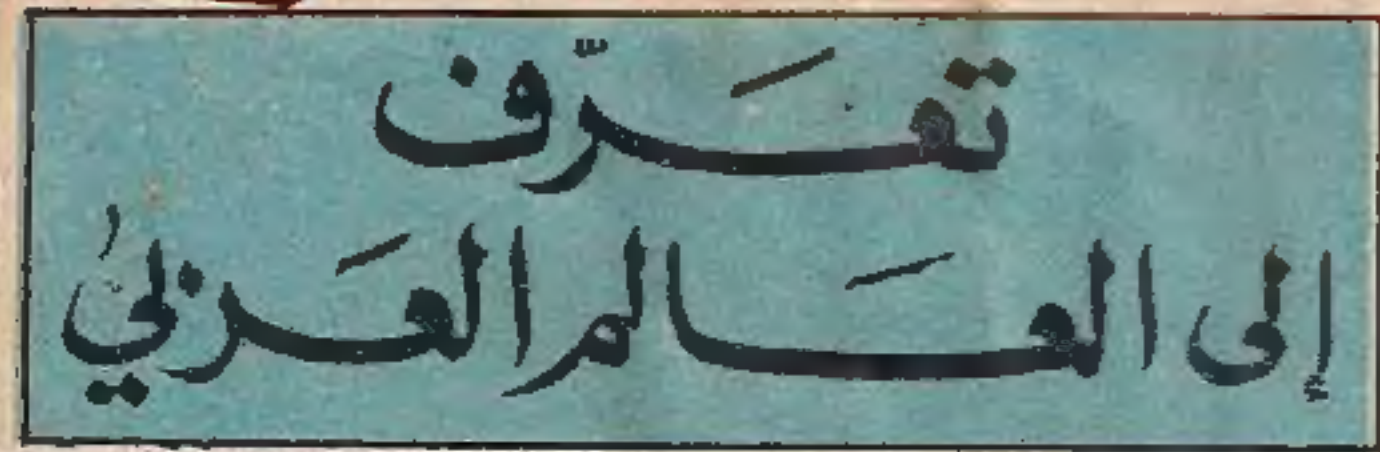 تعَرّف
إلى العَالم العَربي